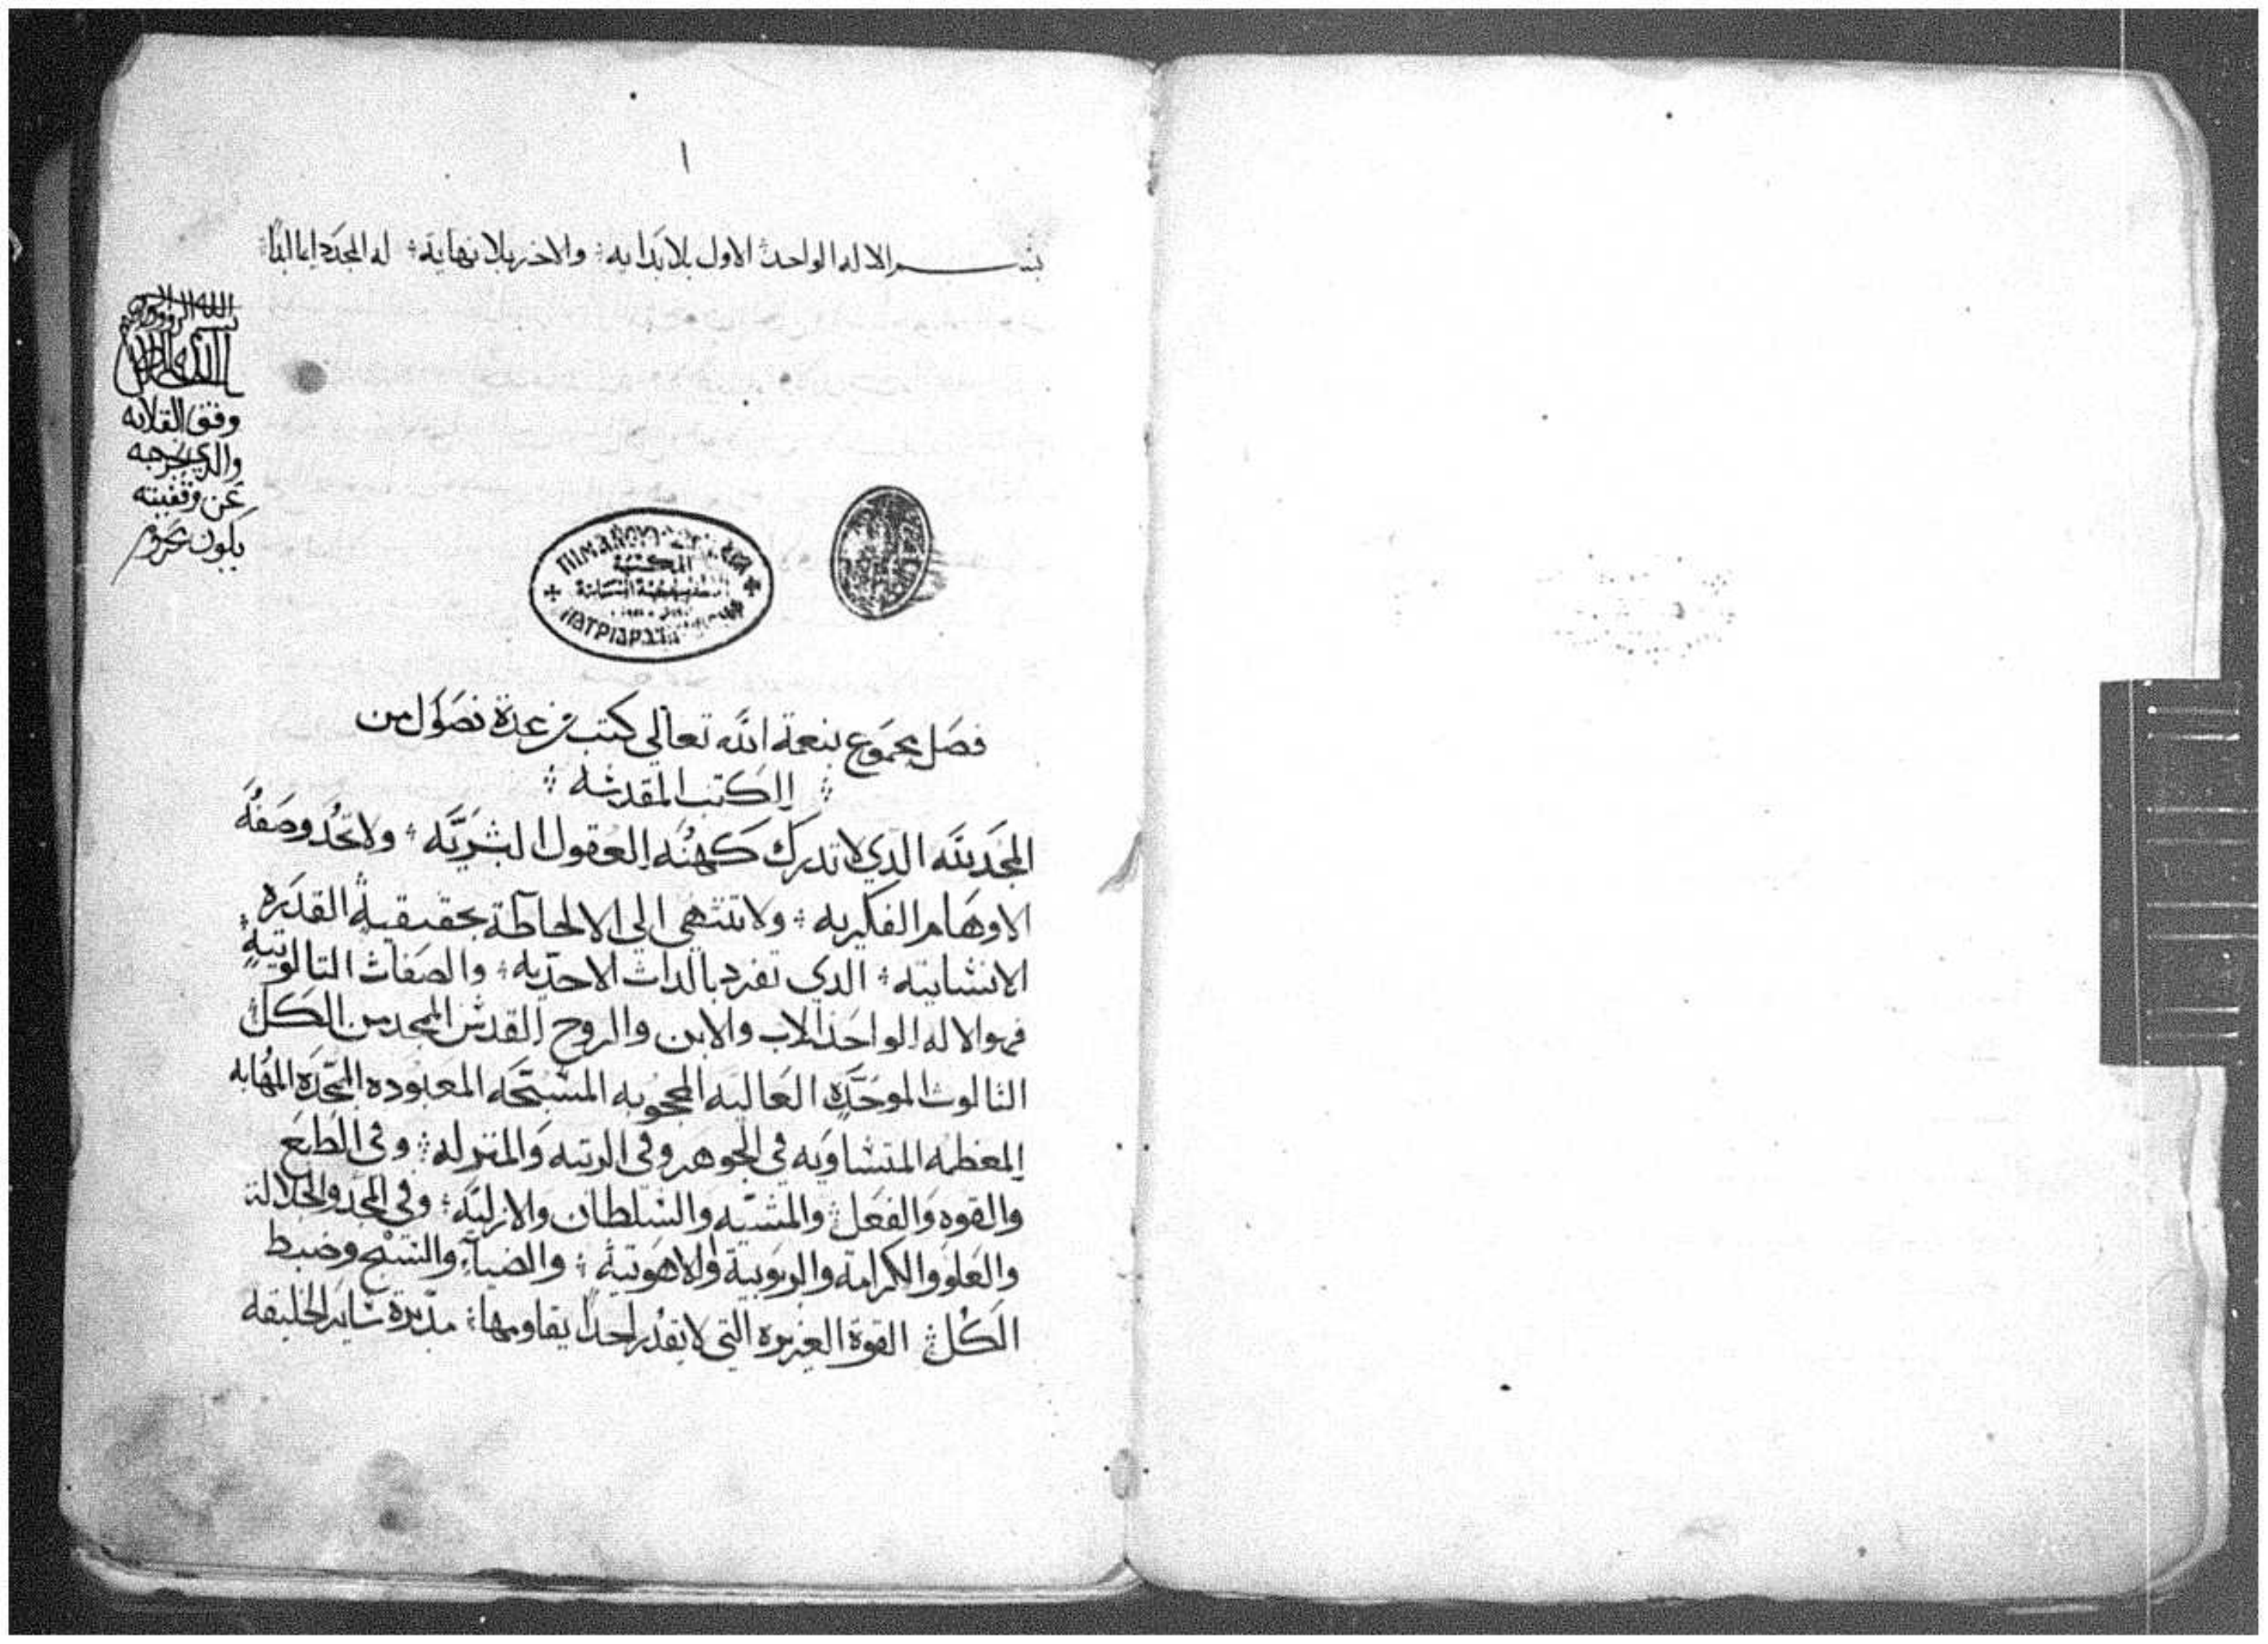 ١
بسم الاله الواحد الاول بلا بدايه ؛ والاخر بلا نهايه ؛ له المجد دايما
وقف القلايه
والذي يخرجه
عن وقفيته
يكون محروم
المكتبة
فصل مجموع بنعمة الله تعالي كتب من عدة فصول من
الكتب المقدسه
المجد لله الذي لا تدرك كهنه العقول البشريه ؛ ولا تحد وصفه
الاوهام الفكريه ؛ ولا تنتهي الي الالحاطة بحقيقية القدره
الانسانيه ؛ الدي تفرد بالدات الاحديه ؛ والصفات التالوتيه ؛
فهو الاله الواحد الاب والابن والروح القدس الممجد من الكل
التالوث الموحده العاليه المحجوبه المسبحه المعبوده الممجده المهابه
المعظمه المتساويه في الجوهر وفي الرتبه والمنزله ؛ وفي الطبع
والقوه والفعل والمشيه والسلطان والازليه ؛ وفي المجد والجلالة
والعلو والكرامة والربوبية والاهوتية ؛ والضياء والتسبح وضبط
الكل القوة العزيزه التي لا يقدر احدا يقاومها ؛ مدبرة ساير الخليقه